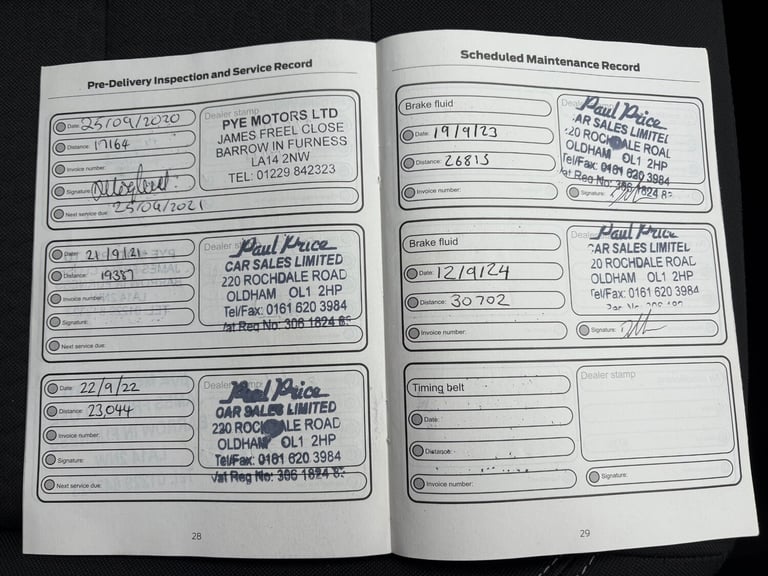 Pre-Delivery Inspection and Service Record
Date: 25/09/2020
Distance: 17164
Invoice number:
Signature:
Next service due: 25/09/2021
Dealer stamp
PYE MOTORS LTD
JAMES FREEL CLOSE
BARROW IN FURNESS
LA14 2NW
TEL: 01229 842323
Date: 21/9/21
Distance: 19387
Invoice number:
Signature:
Next service due:
Paul Price
CAR SALES LIMITED
220 ROCHDALE ROAD
OLDHAM OL1 2HP
Tel/Fax: 0161 620 3984
Vat Reg No: 306 1824
Date: 22/9/22
Distance: 23,044
Invoice number:
Signature:
Next service due:
Dealer stamp:
Paul Price
CAR SALES LIMITED
220 ROCHDALE ROAD
OLDHAM OL1 2HP
Tel/Fax: 0161 620 3984
Vat Reg No: 306 1824
28
Scheduled Maintenance Record
Brake fluid
Date: 19/9/23
Distance: 26815
Invoice number:
Paul Price
AR SALES LIMITE
20 ROCHDALE ROA
OLDHAM OL1 2HP
Tel/Fax: 0161 620 3984
at Reg No: 306 1824
Signature:
Brake fluid
Date: 12/9/24
Distance: 30702
Invoice number:
Paul Price
CAR SALES LIMITE
20 ROCHDALE ROAD
OLDHAM OL1 2HP
Tel/Fax: 0161 620 3984
Signature:
Timing belt
Date:
Distance:
Invoice number:
Dealer stamp
Signature:
29